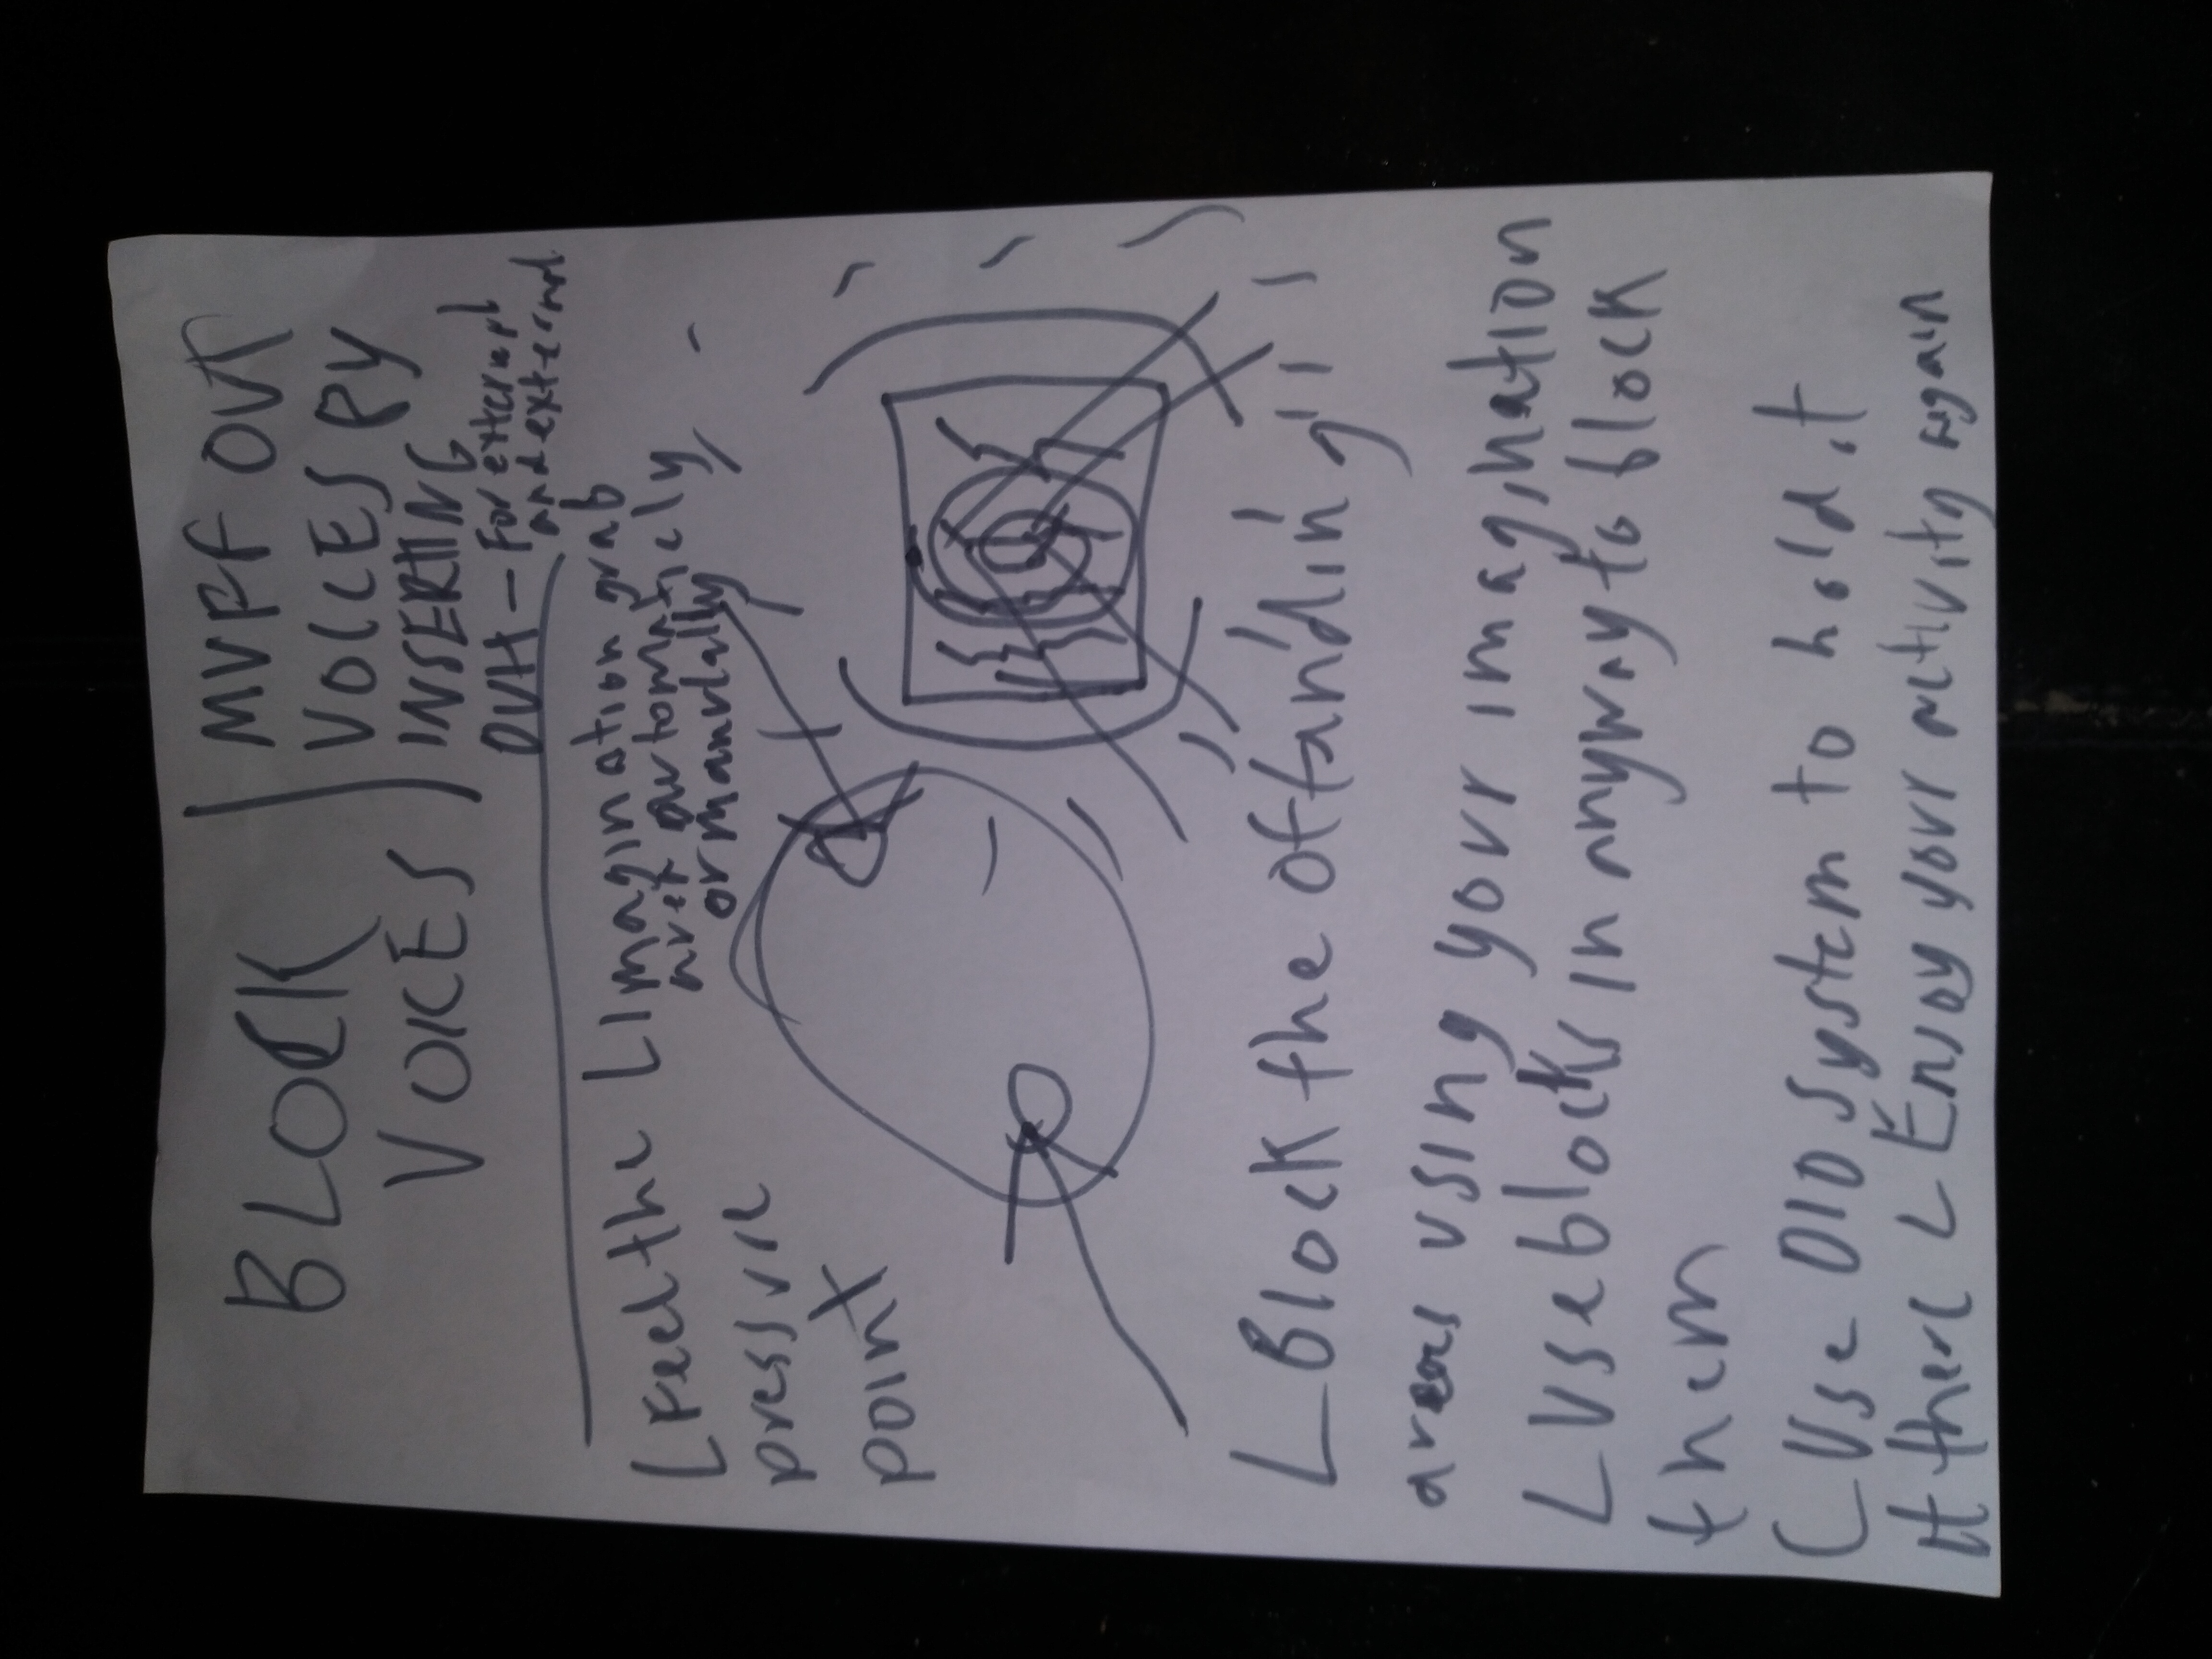 BLOCK
VOICES
MUFF OUT
VOICES BY
INSERTING
DUH - For external
and external
Feel the
pressure
point
Imagination grab
it automaticly
or manually
Block the ofanding
areas using your imagination
Use blocks in anyway to block
them
Use OlO system to hold it
there Enjoy your activity again